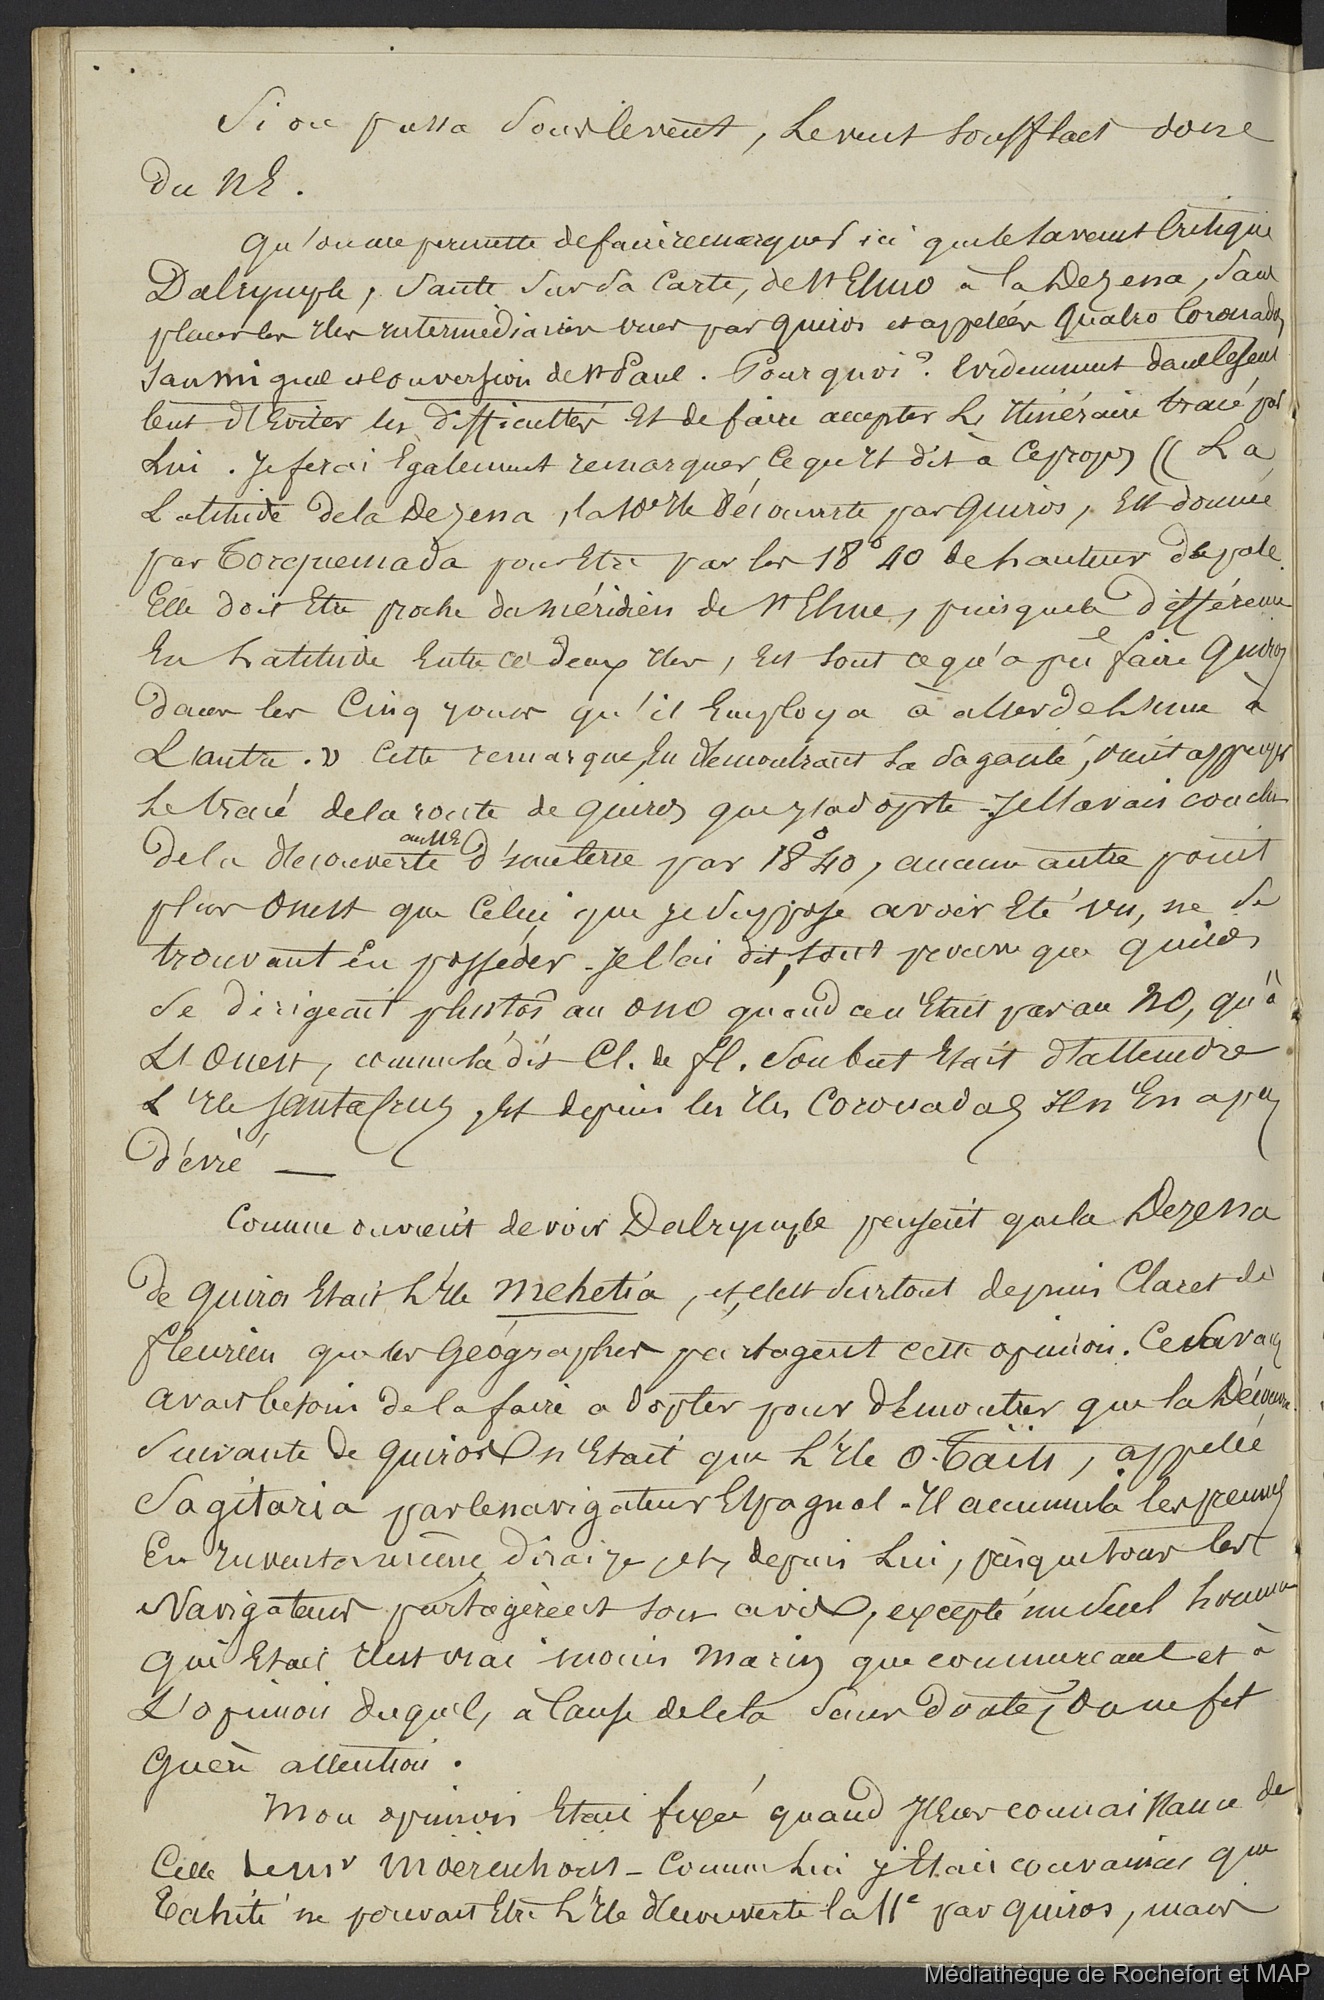 Si on passa sous le vent, le vent soufflait donc
du NE.
Qu'on me permette de faire remarquer ici que le savant critique
Dalrymple, saute sur sa carte, de St Elmo à la Dezena, sans
placer les îles intermédiaires vues par Quiros et appelées Quatro Coronadas
San Miguel et Conversion de St Paul. Pourquoi? Evidemment dans le seul
but d'Eviter les difficultés Et de faire accepter l'Itinéraire tracé par
Lui. Je ferai Egalement remarquer ce qu'il dit à ce propos (( La
Latitude de la Dezena, la 10e île découverte par Quiros, Est donnée
par Torquemada pour Etre par les 18° 40 de hauteur du pole.
Elle doit Etre proche du méridien de St Elme, puisque la différence
En Latitude Entre ces deux îles, Est tout ce qu'a pu faire Quiros
dans les Cinq jours qu'il Employa à aller de L'une à
L'autre. )) Cette remarque, En démontrant sa sagacité, vient appuyer
Le tracé de la route de Quiros que j'adopte - Je l'avais conclu
de la découverte au NE d'une terre par 18° 40, aucun autre point
plus Ouest que Celui que je suppose avoir Eté vu, ne se
trouvant En posséder - Je l'ai dit, tout prouve que Quiros
se dirigeait plustôt au ONO quand ce n'Etait pas au NO, qu'à
L'Ouest, comme l'a dit Cl. de Fl. Son but Etait d'atteindre
L'île Santa Cruz, Et depuis les îles Coronadas Il n'En a pas
dévié —
Comme on vient de voir Dalrymple pensait que la Dezena
de Quiros Etait L'île Mehetia, et c'est surtout depuis Claret de
Fleurieu que les Géographes partagent cette opinion. Ce savant
avait besoin de la faire adopter pour démontrer que la Découverte
Suivante de Quiros n'Etait que L'île O-Taïti, appelée
Sagitaria par le navigateur Espagnol - Il accumula les preuves
En inventa même, dirai-je, et, depuis Lui, presque tous les
Navigateurs partagèrent son avis, excepté un seul homme
qui Etait Il est vrai moins marin que commerçant et à
L'opinion duquel, à Cause de cela sans doute, On ne fit
Guère attention.
Mon opinion Etait fixée quand J'Eus connaissance de
Celle de Mr Moerenhout - Comme Lui j'Etais convaincu que
Tahiti ne pouvait Etre L'île découverte la 11e par Quiros, mais
Médiathèque de Rochefort et MAP